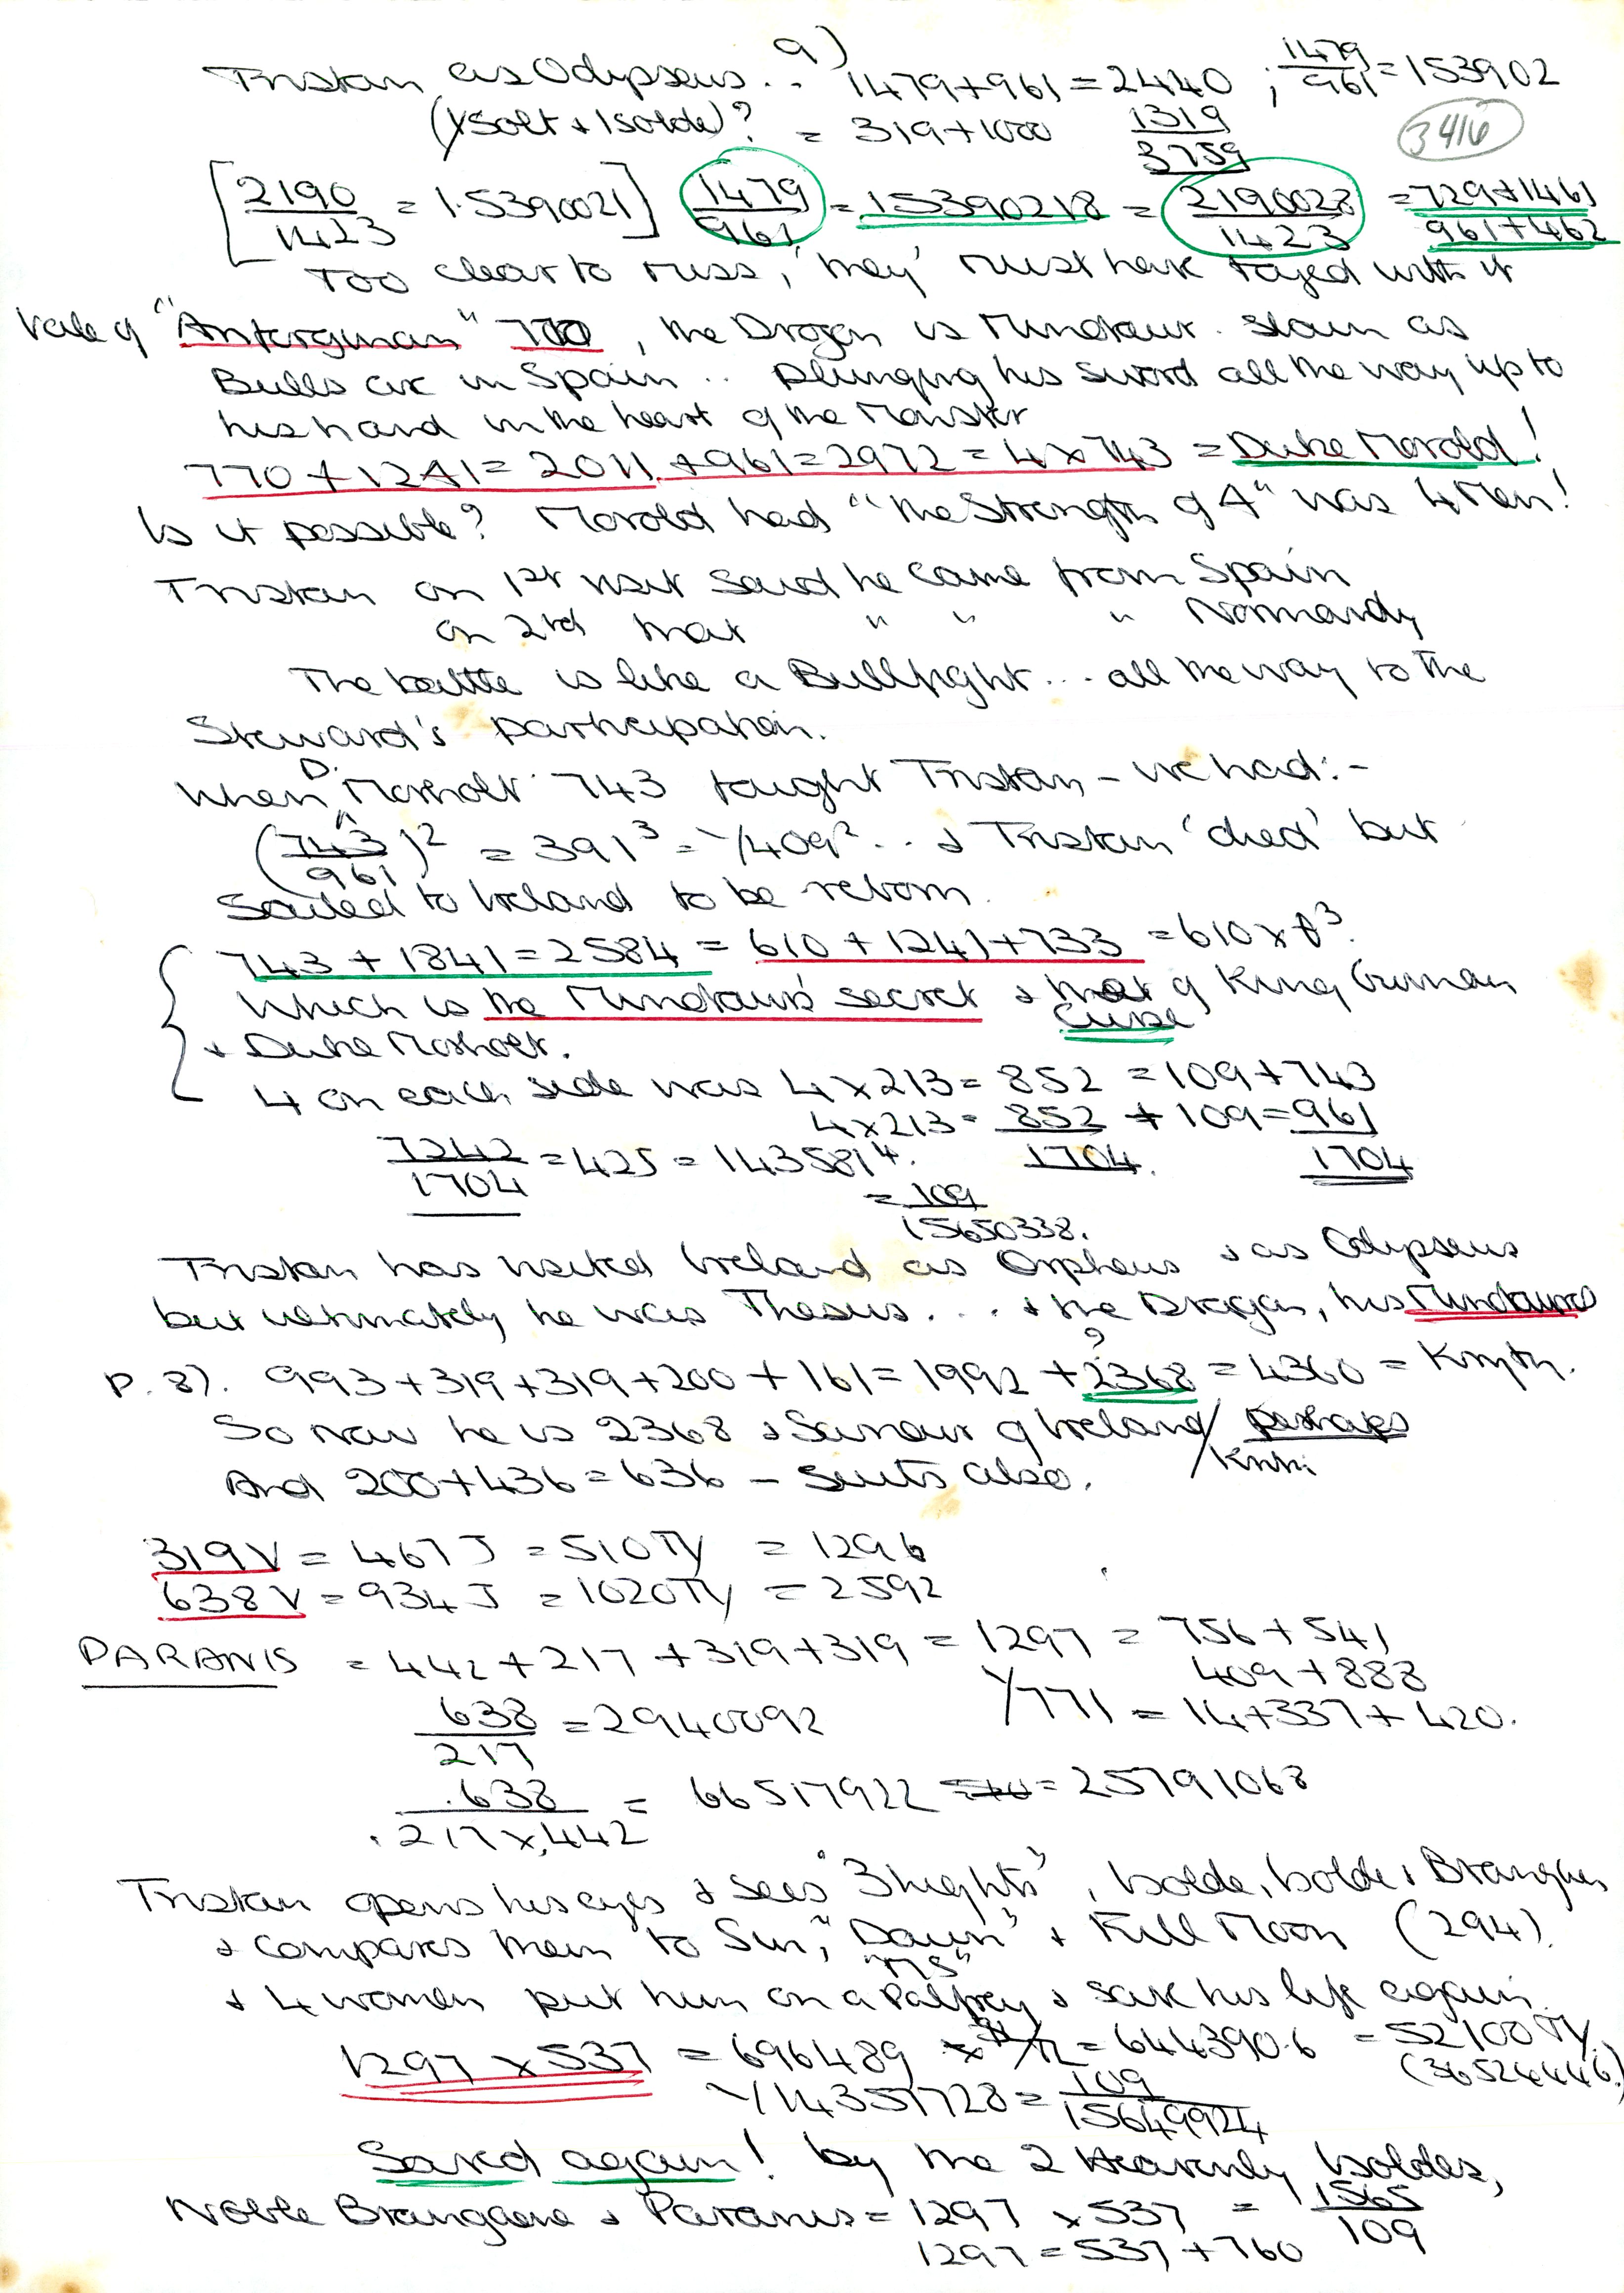 9)
Tristan as Odysseus .. 1479+961=2440 ; 1479/961=153902
(Ysolt + Isolde)? = 319+1000 1319
3759
3416
[2190/1423 = 1.5390021] 1479/961 = 15390218 = 2190028/1423 = 729+1461/961+462
Too clear to miss, 'they' must have toyed with it
Vale of "Anferginan" 770, the Dragon is Minotaur. Slain as
Bulls are in Spain .. plunging his sword all the way up to
his hand in the heart of the Monster
770+1241=2011+961=2972=4×743 = Duke Morold!
Is it possible? Morold had "the Strength of 4" was 4 Men!
Tristan on 1st visit said he came from Spain
on 2nd that " " " Normandy
The battle is like a Bullfight ... all the way to the
Steward's participation.
When D. Morholt 743 fought Tristan - we had:-
(743/961)² = 391³ = 1/409² .. & Tristan 'died' but
Sailed to Ireland to be reborn.
743+1841=2584=610+1241+733 =610×ϑ³.
Which is the Minotaur's secret & that of King Gurman
Curse
+ Duke Morholt.
4 on each side was 4×213=852 =109+743
4×213=852 + 109=961
7242/1704 = 425 = 143581⁴. 1704. 1704
= 109/15650338.
Tristan has visited Ireland as Orpheus & as Odysseus
but ultimately he was Theseus. ... & the Dragon, his Minotaur
P. 8). 993+319+319+200+161=1992+2368?=4360 = Kmyth.
So now he is 2368 & Saviour of Ireland / perhaps
And 200+436=636 - Suits also.
319V = 467J = 510TY = 1296
638V = 934J = 1020TY = 2592
PARANIS = 442+217+319+319=1297=756+541
409+888
638/217 = 2940092 1/771 = 14+337+420.
.638/.217×.442 = 66517922 = 25791068
Tristan opens his eyes & sees "3 lights", Isolde, Isolde & Brangien
& compares them to Sun, "Dawn" & Full Moon (294).
"MS"
& 4 women put him on a Palfrey & save his life again.
1297×537 = 696489 = 644390.6 = 52100TY.
(36524446.)
1/14357728 = 109/15649924
Saved again! by the 2 Heavenly Isoldes,
Noble Brangaene & Paranis = 1297 × 537 = 1565/109
1297=537+760